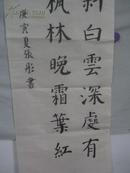 斜白雲深處有
楓林晚霜葉紅
庚寅夏張彤書